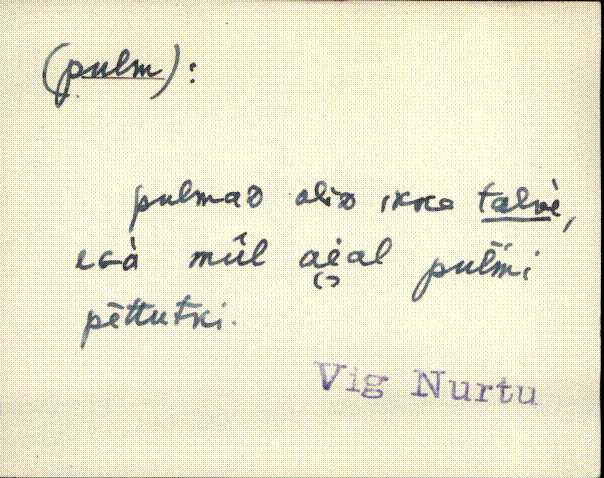 (pulm):
pulmaᴅ oliᴅ ikke talvè,
egà mûl aėal pulmi
pēttutki.
Vig Nurtu